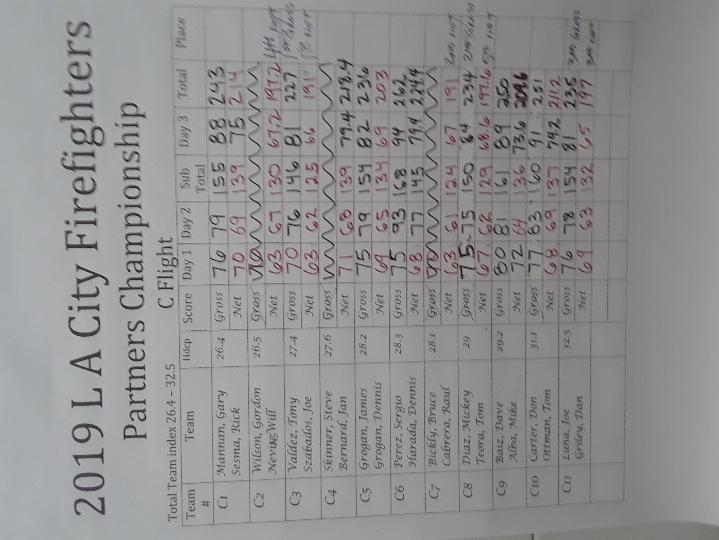 2019 L A City Firefighters
Partners Championship
C Flight
Total Team index 26.4 – 32.5
Team # Team Hdcp Score Day 1 Day 2 Sub Total Day 3 Total Place
C1 Mannan, Gary 26.4 Gross 76 79 155 88 243
Sesma, Rick Net 70 69 139 75 214
C2 Wilson, Gordon 26.5 Gross
Will Net 63 67 130 67.2 197.2 4th net
C3 Valdez, Tony 27.4 Gross 70 76 146 81 227 1st Gross
Szabados, Joe Net 63 62 125 66 191 1st net
C4 Skinner, Steve 27.6 Gross
Bernard, Jan Net 71 68 139 79.4 218.4
C5 Grogan, James 28.2 Gross 75 79 154 82 236
Grogan, Dennis Net 69 65 134 69 203
C6 Perez, Sergio 28.3 Gross 75 93 168 94 262
Harada, Dennis Net 68 77 145 79.4 224.4
C7 Bickly, Bruce 28.1 Gross
Cabrera, Raul Net 63 61 124 67 191 2nd net
C8 Diaz, Mickey 29 Gross 75 75 150 84 234 2nd Gross
Teora, Tom Net 67 62 129 68.6 197.6 5th net
C9 Baiz, Dave 29.2 Gross 80 81 161 89 250
Alba, Mike Net 72 64 136 73.6 209.6
C10 Carter, Don 31.1 Gross 77 83 160 91 251
Ottman, Tom Net 68 69 137 74.2 211.2
C11 Luna, Joe 32.5 Gross 76 78 154 81 235 3rd Gross
Griley, Dan Net 69 63 132 65 197 3rd net